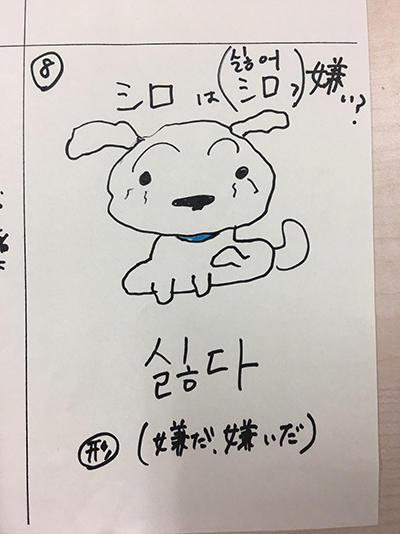 ⑧
シロ は (싫어 シロ?) 嫌い?
싫다
㊒ (嫌だ、嫌いだ)